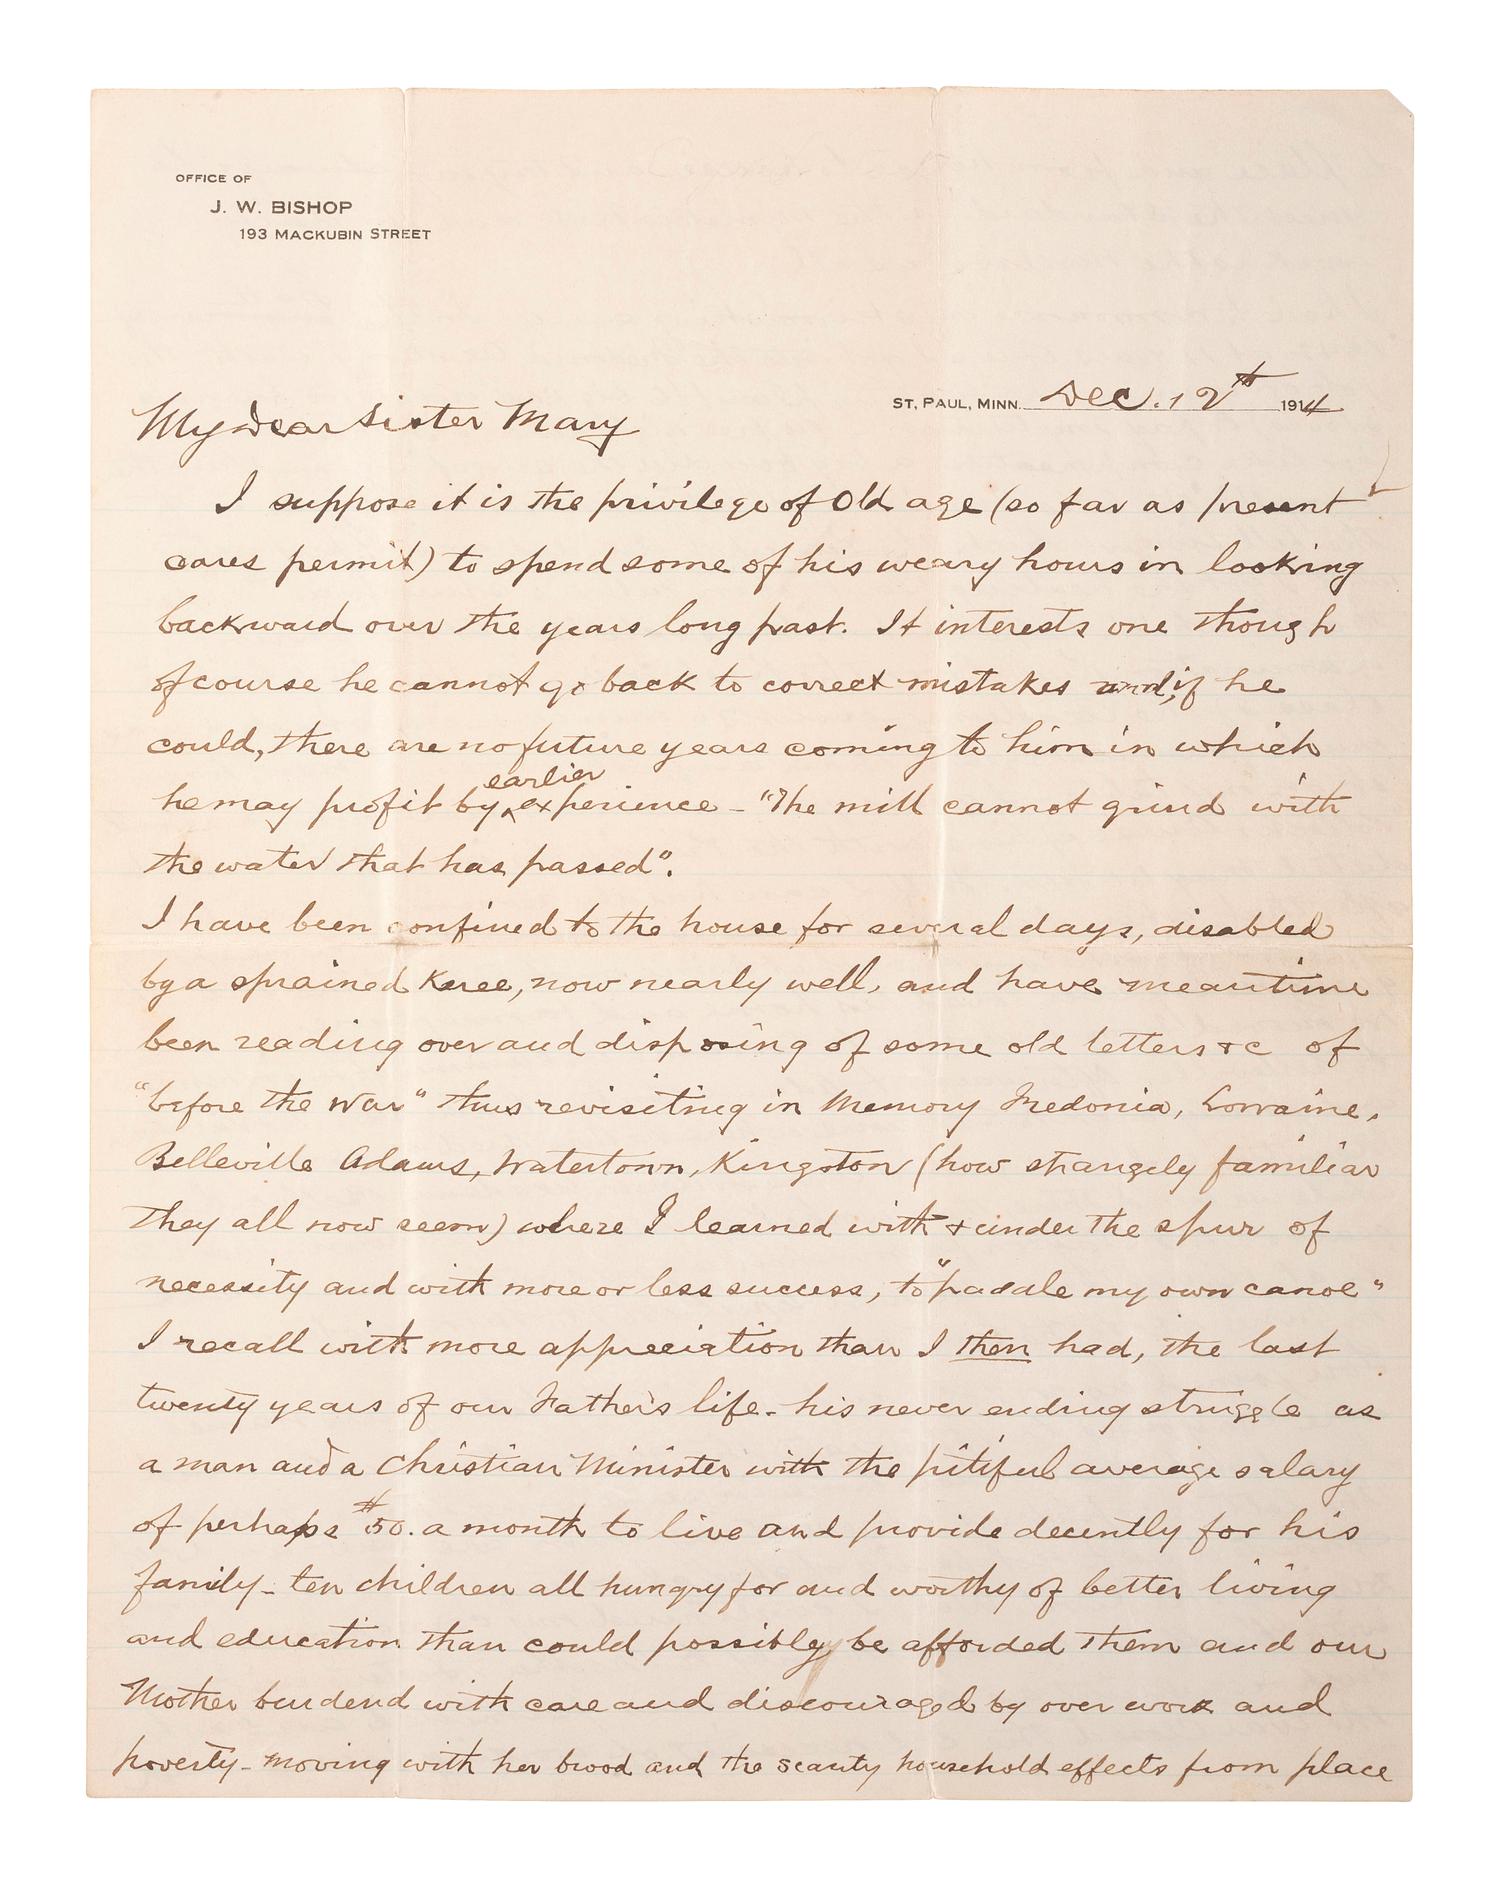 OFFICE OF
J. W. BISHOP
193 MACKUBIN STREET
ST. PAUL, MINN. Dec. 12th 1914
My Dear Sister Mary
I suppose it is the privilege of Old age (so far as present
cares permit) to spend some of his weary hours in looking
backward over the years long past. It interests one though
of course he cannot go back to correct mistakes and, if he
could, there are no future years coming to him in which
earlier
he may profit by ^ experience - "The mill cannot grind with
the water that has passed".
I have been confined to the house for several days, disabled
by a sprained Knee, now nearly well, and have meantime
been reading over and disposing of some old letters &c of
"before the War" thus revisiting in Memory Fredonia, Lorraine,
Belleville Adams, Watertown, Kingston (how strangely familiar
they all now seem) where I learned with & under the spur of
necessity and with more or less success, to "paddle my own canoe"
I recall with more appreciation than I then had, the last
twenty years of our Father's life - his never ending struggle as
a man and a Christian Minister with the pitiful average salary
of perhaps $50. a month to live and provide decently for his
family - ten children all hungry for and worthy of better living
and education than could possibly be afforded them and our
Mother burdend with care and discouraged by over work and
poverty - moving with her brood and the scanty household effects from place